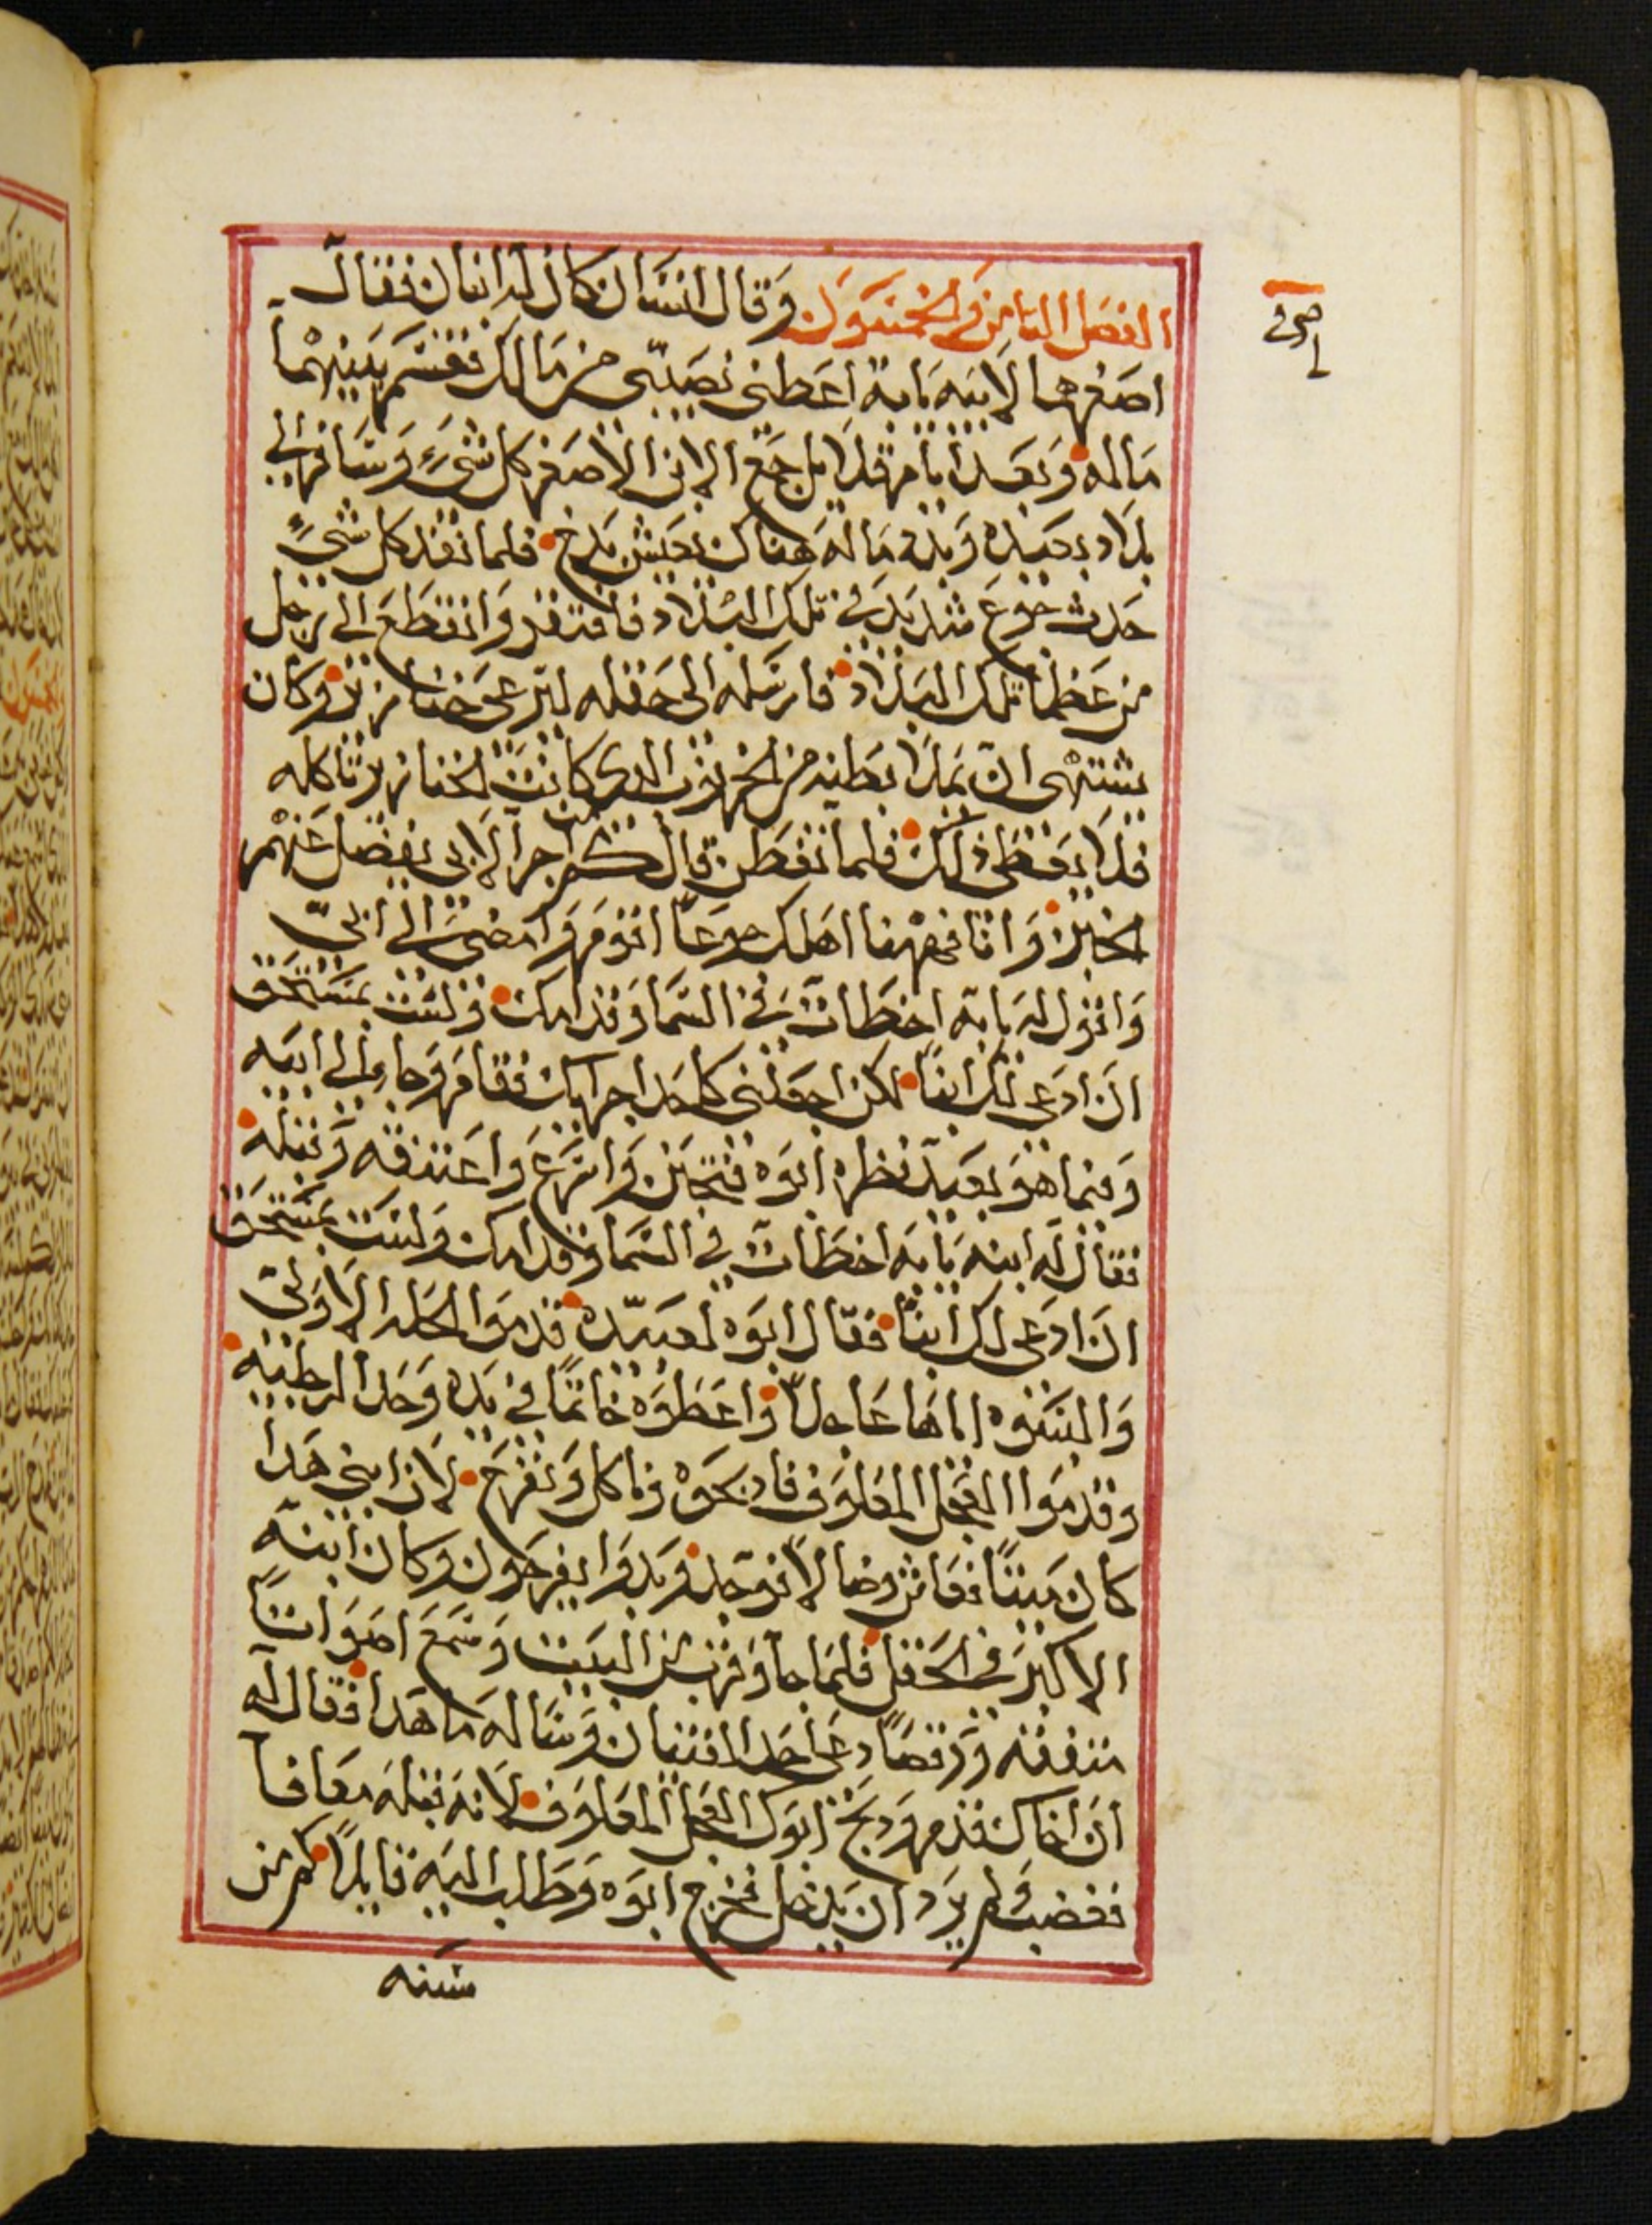 الفصل الثامن والخمسون وقال انسان كان له ابنان فقال
اصغرهما لابيه يابه اعطني نصيبي من مالك فقسم بينهما
ماله وبعد ايام قلايل جمع الابن الاصغر كل شيء وسافر الي
بلاد بعيده وبدد ماله هناك بعيش بدخ فلما نفد كل شيء
حدث جوع شديد في تلك البلاد فافتقر وانقطع الي رجل
من عظما تلك البلاد فارسله الى حقله ليرعى خنازير وكان
يشتهى ان يملا بطنه من الخرنوب الدي كانت الخنازير تاكله
فلا يعطى ذلك فلما تفطن قال كم من اجرا لابي يفضل عنهم
الخبز وانا فههنا اهلك جوعا اقوم وامضي الي ابي
واقول له يابه اخطات في السما وقدامك ولست بمستحق
ان ادعى لك ابنا لكن اجعلني كاحد اجرايك فقام وجا الي ابيه
وفيما هو بعيد نظره ابوه فتحنن واسرع واعتنقه وقبله
فقال له ابنه يابه اخطات في السما وقدامك ولست بمستحق
ان ادعى لك ابنا فقال ابوه لعبيده قدموا الحله الاولي
والبسوه اياها عاجلا واعطوه خاتما في يده وحدا لرجليه
وقدموا العجل المعلوف فادبحوه وناكل ونفرح لان ابني هدا
كان ميتا فعاش وضالا فوجد وبدوا يفرحون وكان ابنه
الاكبر في الحقل فلما جا وقرب من البيت وسمع اصواتا
متفقه ورقصا دعى احد الفتيان وساله ما هدا فقال له
ان اخاك قدم ودبح ابوك العجل المعلوف لانه قبله معافا
فغضب ولم يرد ان يدخل فخرج ابوه وطلب اليه قايلا كم من
سنه